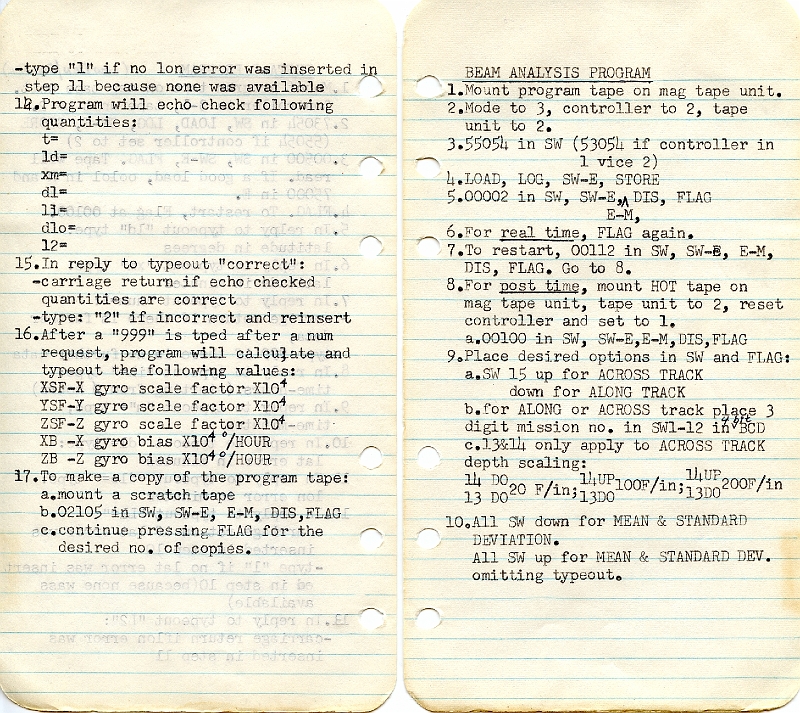 -type "1" if no lon error was inserted in
step 11 because none was available
14.Program will echo check following
quantities:
t=
ld=
xm=
dl=
l1=
dlo=
l2=
15.In reply to typeout "correct":
-carriage return if echo checked
quantities are correct
-type: "2" if incorrect and reinsert
16.After a "999" is tped after a num
request, program will calculate and
typeout the following values:
XSF-X gyro scale factor X10⁴
YSF-Y gyro scale factor X10⁴
ZSF-Z gyro scale factor X10⁴
XB -X gyro bias X10⁴ °/HOUR
ZB -Z gyro bias X10⁴ °/HOUR
17.To make a copy of the program tape:
a.mount a scratch tape
b.02105 in SW, SW-E, E-M, DIS,FLAG
c.continue pressing FLAG for the
desired no. of copies.
BEAM ANALYSIS PROGRAM
1.Mount program tape on mag tape unit.
2.Mode to 3, controller to 2, tape
unit to 2.
3.55054 in SW (53054 if controller in
1 vice 2)
4.LOAD, LOG, SW-E, STORE
5.00002 in SW, SW-E,^ DIS, FLAG
E-M,
6.For real time, FLAG again.
7.To restart, 00112 in SW, SW-E, E-M,
DIS, FLAG. Go to 8.
8.For post time, mount HOT tape on
mag tape unit, tape unit to 2, reset
controller and set to 1.
a.00100 in SW, SW-E,E-M,DIS,FLAG
9.Place desired options in SW and FLAG:
a.SW 15 up for ACROSS TRACK
down for ALONG TRACK
b.for ALONG or ACROSS track place 3
digit mission no. in SW1-12 in 4 bit BCD
c.13&14 only apply to ACROSS TRACK
depth scaling:
14 DO 20 F/in; 14UP 100F/in; 14UP 200F/in
13 DO 13DO 13DO
10.All SW down for MEAN & STANDARD
DEVIATION.
All SW up for MEAN & STANDARD DEV.
omitting typeout.